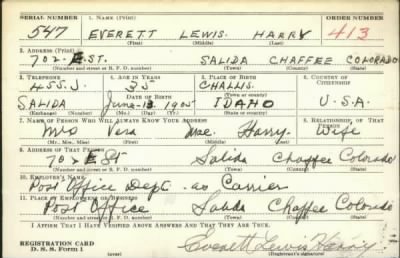 SERIAL NUMBER 1. NAME (Print) ORDER NUMBER
547 EVERETT LEWIS HARRY 413
(First) (Middle) (Last)
2. ADDRESS (Print)
702 E ST. SALIDA CHAFFEE COLORADO
(Number and street or R. F. D. number) (Town) (County) (State)
3. TELEPHONE 4. AGE IN YEARS 5. PLACE OF BIRTH 6. COUNTRY OF CITIZENSHIP
455.J. 35 CHALLIS
DATE OF BIRTH (Town or county)
SALIDA June 13 1905 IDAHO U.S.A.
(Exchange) (Number) (Mo.) (Day) (Yr.) (State or country)
7. NAME OF PERSON WHO WILL ALWAYS KNOW YOUR ADDRESS 8. RELATIONSHIP OF THAT PERSON
Mrs Vera Mae Harry Wife
(Mr., Mrs., Miss) (First) (Middle) (Last)
9. ADDRESS OF THAT PERSON
702 E St Salida Chaffee Colorado
(Number and street or R. F. D. number) (Town) (County) (State)
10. EMPLOYER'S NAME
Post Office Dept. as Carrier
11. PLACE OF EMPLOYMENT OR BUSINESS
Post Office Salida Chaffee Colorado
(Number and street or R. F. D. number) (Town) (County) (State)
I AFFIRM THAT I HAVE VERIFIED ABOVE ANSWERS AND THAT THEY ARE TRUE.
REGISTRATION CARD
D. S. S. Form 1
Everett Lewis Harry
(Registrant's signature)